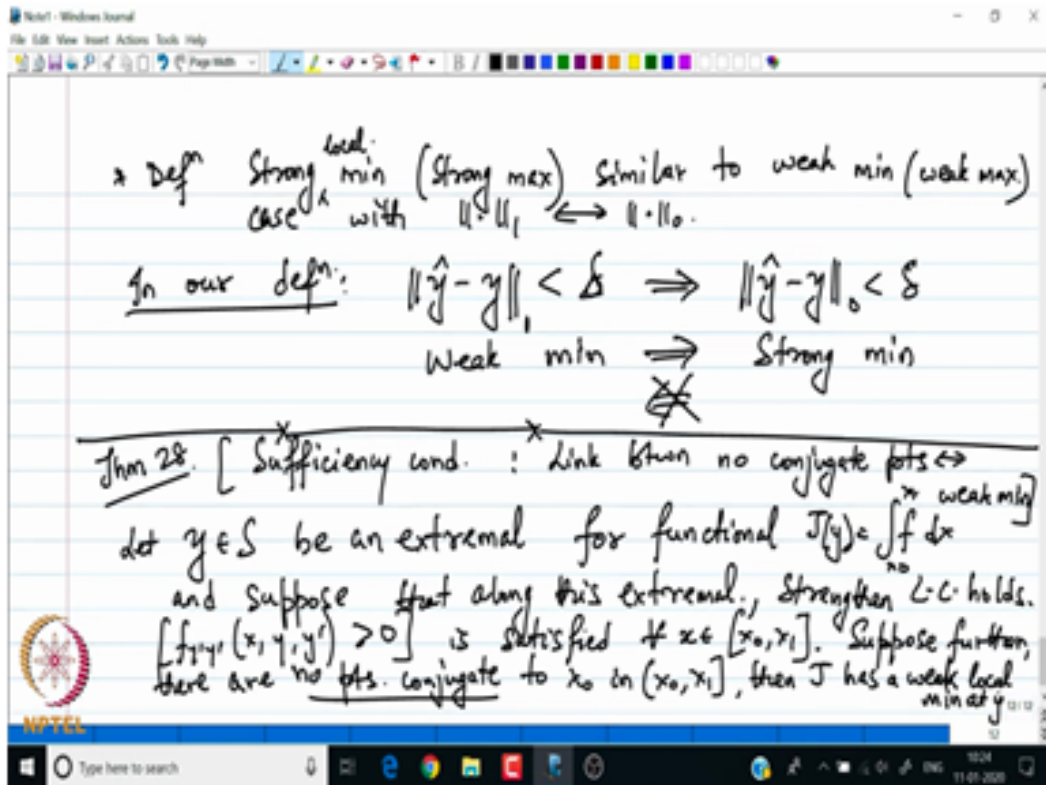 Note1 - Windows Journal
File Edit View Insert Actions Tools Help
Page Width
* Defⁿ Strong local min (Strong max) Similar to weak min (weak max)
case with ‖·‖₁ ⟷ ‖·‖₀.
In our defⁿ: ‖ŷ - y‖₁ < δ ⟹ ‖ŷ - y‖₀ < δ
Weak min ⟹ Strong min
Thm 28. [Sufficiency cond. : Link btwn no conjugate pts ↔
weak min]
Let y ∈ S be an extremal for functional J(y) = ∫ f dx
and suppose that along this extremal, Strengthen L-C holds.
[f_{y'y'} (x, y, y') > 0] is satisfied ∀ x ∈ [x₀, x₁]. Suppose further,
there are no pts. conjugate to x₀ in (x₀, x₁], then J has a weak local
min at y
NPTEL
12/12
12
Type here to search
ENG
10:24
11-01-2020